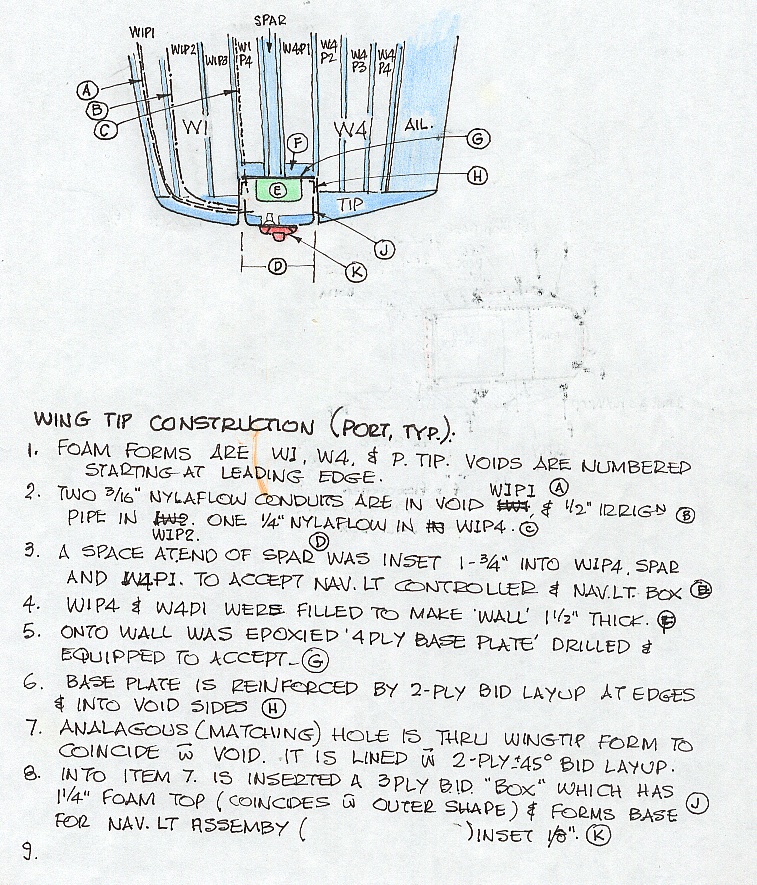 SPAR
W1P1
W1P2
W1P3
W1 P4
W4P1
W4 P2
W4 P3
W4 P4
A
B
C
W1
W4
AIL.
F
G
E
H
TIP
J
D
K
WING TIP CONSTRUCTION (PORT, TYP.):
1. FOAM FORMS ARE W1, W4, & P. TIP. VOIDS ARE NUMBERED
STARTING AT LEADING EDGE.
W1P1 A
2. TWO 3/16" NYLAFLOW CONDUITS ARE IN VOID & 1/2" IRRIGN B
PIPE IN ONE 1/4" NYLAFLOW IN W1P4. C
W1P2. D
3. A SPACE AT END OF SPAR WAS INSET 1-3/4" INTO W1P4, SPAR
AND W4P1. TO ACCEPT NAV. LT CONTROLLER & NAV. LT. BOX E
4. W1P4 & W4P1 WERE FILLED TO MAKE 'WALL' 1 1/2" THICK. F
5. ONTO WALL WAS EPOXIED '4 PLY BASE PLATE' DRILLED &
EQUIPPED TO ACCEPT- G
6. BASE PLATE IS REINFORCED BY 2-PLY BID LAYUP AT EDGES
& INTO VOID SIDES H
7. ANALAGOUS (MATCHING) HOLE IS THRU WINGTIP FORM TO
COINCIDE w̄ VOID. IT IS LINED w̄ 2-PLY ±45° BID LAYUP.
8. INTO ITEM 7. IS INSERTED A 3PLY BID "BOX" WHICH HAS
1 1/4" FOAM TOP (COINCIDES w̄ OUTER SHAPE) & FORMS BASE J
FOR NAV. LT ASSEMBY ( ) INSET 1/8". K
9.